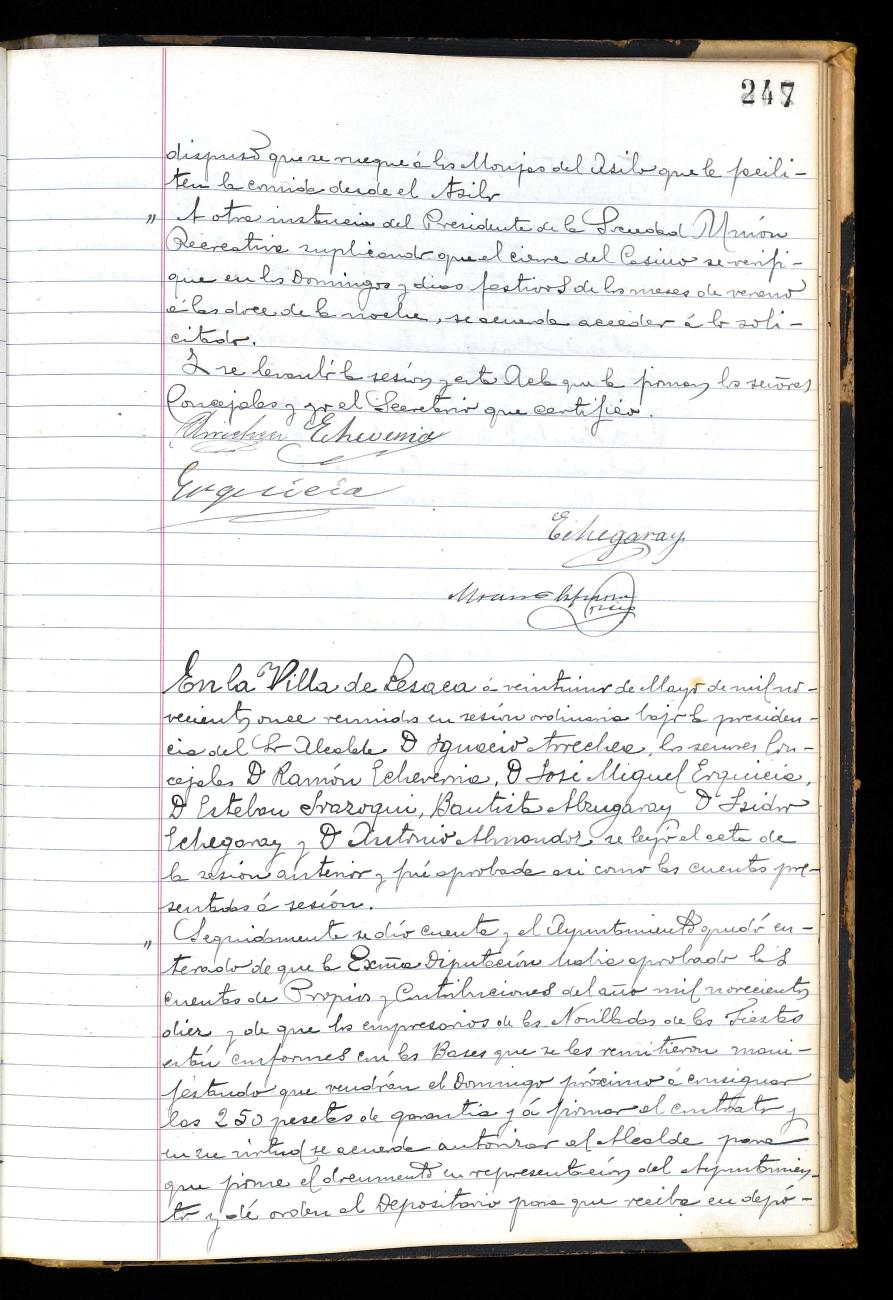 247
dispuso que se ruegue á las Monjas del Asilo que le facili-
ten la comida desde el Asilo
" A otra instancia del Presidente de la Sociedad Unión
Recreativa suplicando que el cierre del Casino se verifi-
que en los Domingos y dias festivos de los meses de verano
á las doce de la noche, se acuerda acceder á lo soli-
citado.
Y se levantó la sesión y esta Acta que la firman los señores
Concejales y yo el Secretario que certifico.
Arrechea Echeverria
Erquicia
Echegaray
En la Villa de Lesaca á veintiuno de Mayo de mil no-
vecientos once reunidos en sesión ordinaria bajo la presiden-
cia del Sr Alcalde D Ignacio Arrechea, los señores Con-
cejales D Ramón Echeverria, D José Miguel Erquicia,
D Esteban Irazoqui, Bautista Alzugaray D Isidro
Echegaray y D Antonio Almandoz se leyó el acta de
la sesión anterior y fué aprobada asi como las cuentas pre-
sentadas á sesión.
" Seguidamente se dió cuenta y el Ayuntamiento quedó en-
terado de que la Exma Diputación habia aprobado las
cuentas de Propios y Contribuciones del año mil novecientos
diez y de que los empresarios de las Novilladas de las Fiestas
están conformes con las Bases que se les remitieron mani-
festando que vendrán el Domingo próximo á consignar
las 250 pesetas de garantia y á firmar el contrato y
en su virtud se acuerda autorizar al Alcalde para
que firme el documento en representación del Ayuntamien-
to y dé orden al Depositario para que reciba en depó-